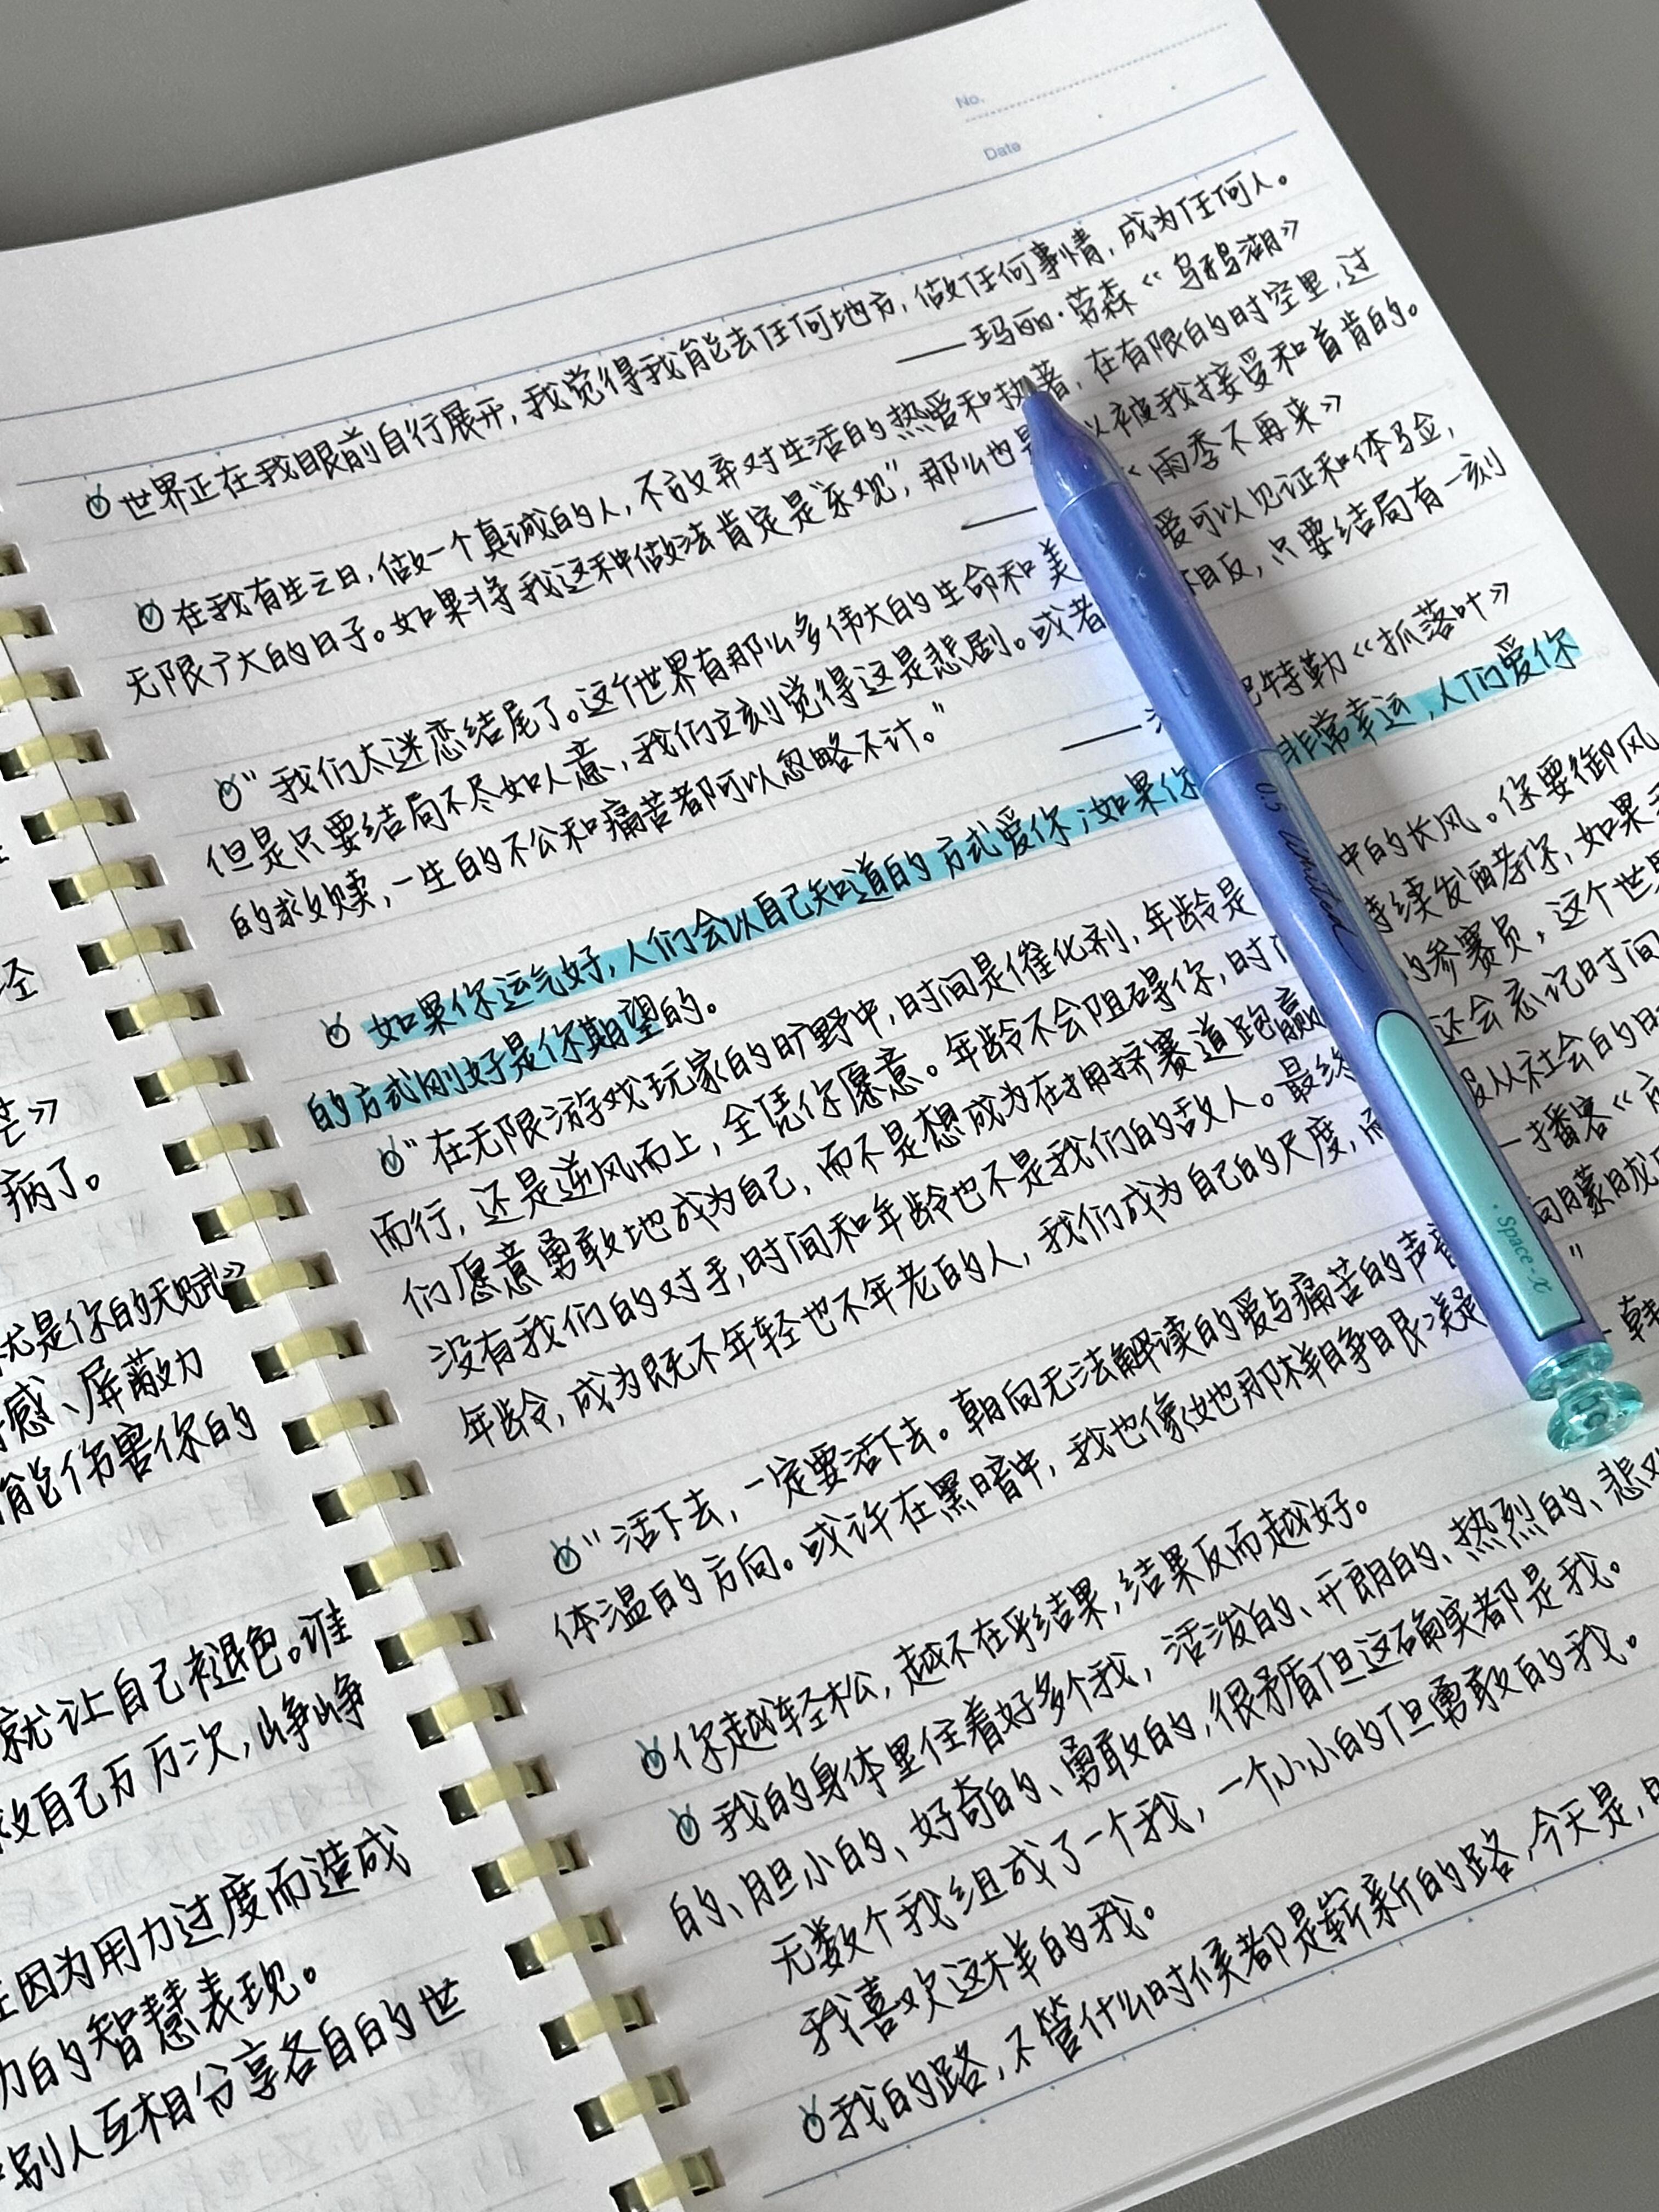 No.
Date
世界正在我眼前自行展开,我觉得我能去任何地方,做任何事情,成为任何人。
——玛丽·劳森《乌鸦湖》
在我有生之日,做一个真诚的人,不放弃对生活的热爱和执著,在有限的时空里,过
无限广大的日子。如果将我这种做法肯定是"乐观",那么也是 以被我接受和首肯的。
——《雨季不再来》
"我们太迷恋结尾了。这个世界有那么多伟大的生命和美 爱可以见证和体验,
但是只要结局不尽如人意,我们立刻觉得这是悲剧。或者 相反,只要结局有一刻
的救赎,一生的不公和痛苦都可以忽略不计。"
—— 巴特勒《抓落叶》
如果你运气好,人们会以自己知道的方式爱你;如果你 非常幸运,人们爱你
的方式刚好是你期望的。
"在无限游戏玩家的旷野中,时间是催化剂,年龄是 中的长风。你要御风
而行,还是逆风而上,全凭你愿意。年龄不会阻碍你,时 持续发酵你,如果
们愿意勇敢地成为自己,而不是想成为在拥挤赛道跑赢 的参赛员,这个世
没有我们的对手,时间和年龄也不是我们的敌人。最终 还会忘记时间
年龄,成为既不年轻也不年老的人,我们成为自己的尺度,而 服从社会的
—播客《
"活下去,一定要活下去。朝向无法解读的爱与痛苦的声音 向朦胧
体温的方向。或许在黑暗中,我也像她那样睁眼凝 "
韩
你越轻松,越不在乎结果,结果反而越好。
我的身体里住着好多个我,活泼的、开朗的、热烈的、悲观
的、胆小的、好奇的、勇敢的,很矛盾但这确实都是我。
无数个我组成了一个我,一个小小的但勇敢的我。
我喜欢这样的我。
我的路,不管什么时候都是崭新的路,今天是,
0.5
Space·X
病了。
就是你的天赋》
感、屏蔽力
能伤害你的
就让自己褪色。谁
救自己万万次,峥峥
因为用力过度而造成
力的智慧表现。
别人互相分享各自的世